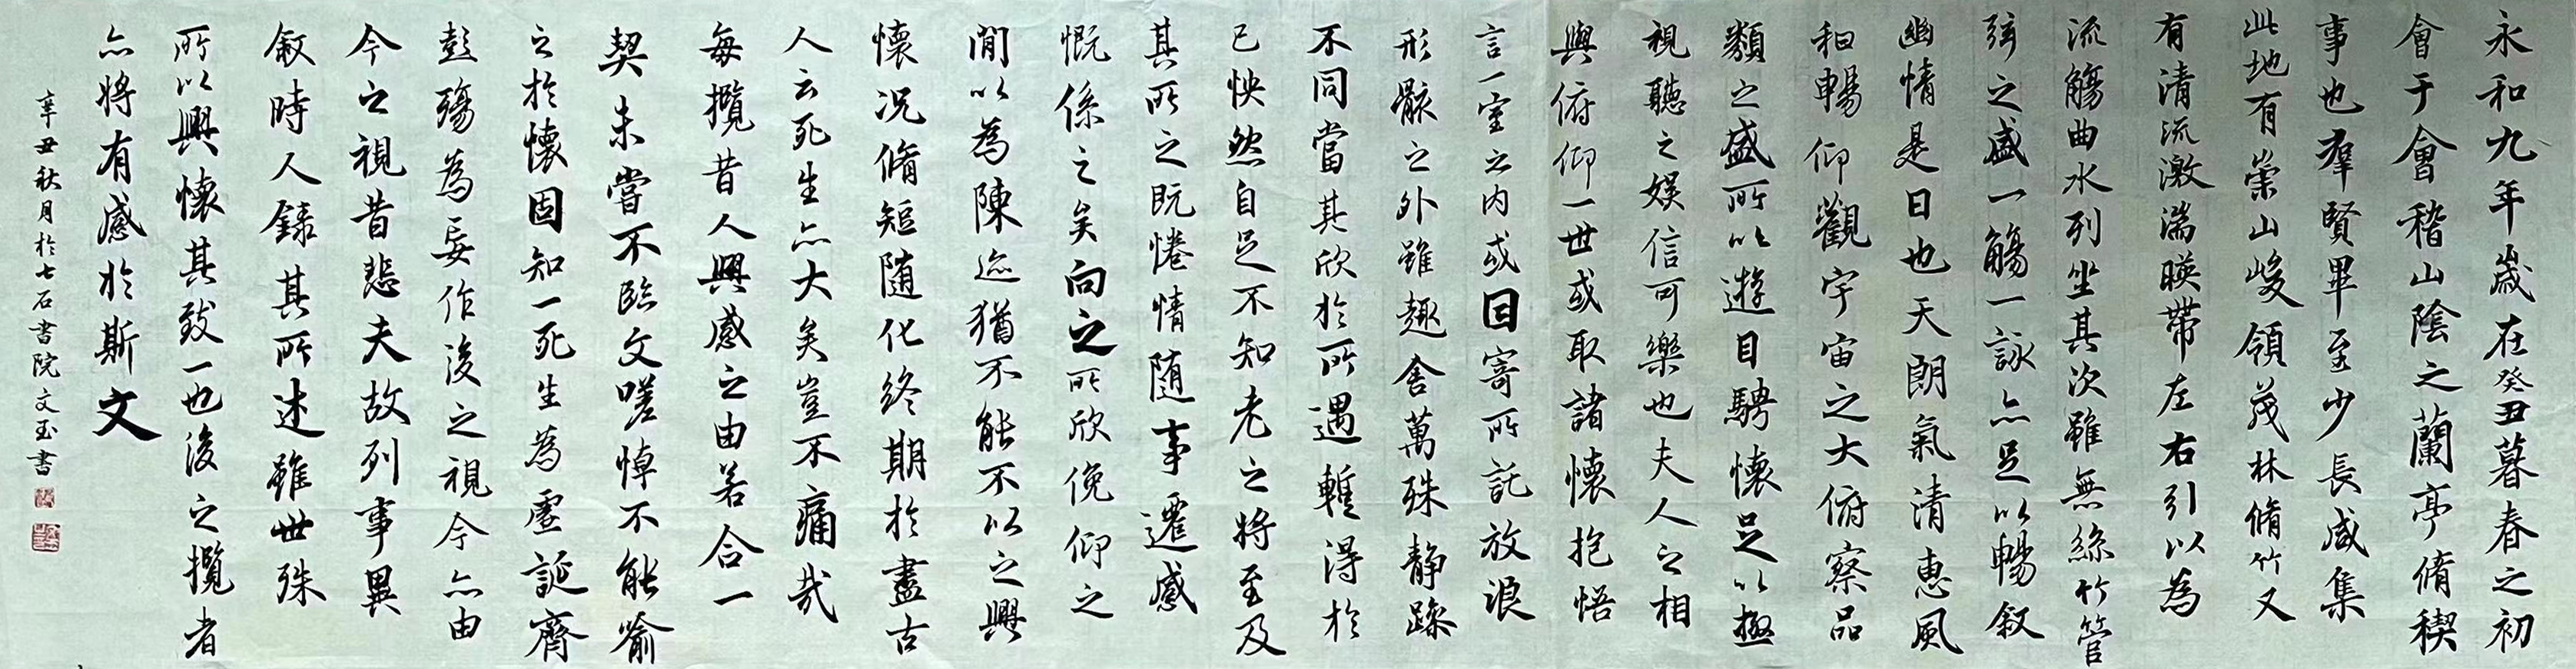 永和九年歲在癸丑暮春之初
會于會稽山陰之蘭亭脩稧
事也羣賢畢至少長咸集
此地有崇山峻領茂林脩竹又
有清流激湍暎帶左右引以為
流觴曲水列坐其次雖無絲竹管
弦之盛一觴一詠亦足以暢叙
幽情是日也天朗氣清恵風
和暢仰觀宇宙之大俯察品
類之盛所以遊目騁懷足以極
視聽之娱信可樂也夫人之相
與俯仰一世或取諸懷抱悟
言一室之内或因寄所託放浪
形骸之外雖趣舍萬殊静躁
不同當其欣於所遇暫得於
己怏然自足不知老之將至及
其所之既惓情随事遷感
慨係之矣向之所欣俛仰之
閒以為陳迹猶不能不以之興
懷况脩短随化終期於盡古
人云死生亦大矣豈不痛哉
每攬昔人興感之由若合一
契未嘗不臨文嗟悼不能喻
之於懷固知一死生為虚誕齊
彭殤為妄作後之視今亦由
今之視昔悲夫故列事異
叙時人録其所述雖世殊
所以興懷其致一也後之攬者
亦將有感於斯文
辛丑秋月於七石書院文玉書